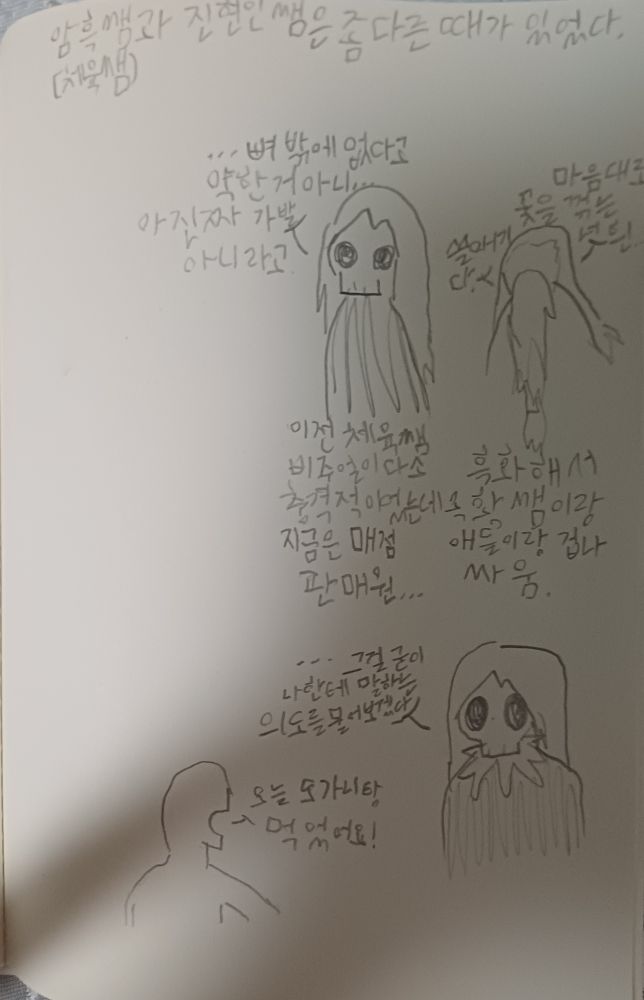 암흑쌤과 진현인쌤은 좀 다른 때가 있었다.
(체육쌤)
... 뼈 밖에 없다고
약한 거 아니...
아 진짜 가발
아니라고.
마음대로
꽃을 꺾는
넋 된...
다.
이전 체육쌤
비주얼이 다소
충격적이었는데
지금은 매점
판매원...
흑화해서
쌤이랑
애들이랑 겁나
싸움.
... 그걸 굳이
나한테 말하는
의도를 물어보겠다
오늘 도가니탕
먹었어요!